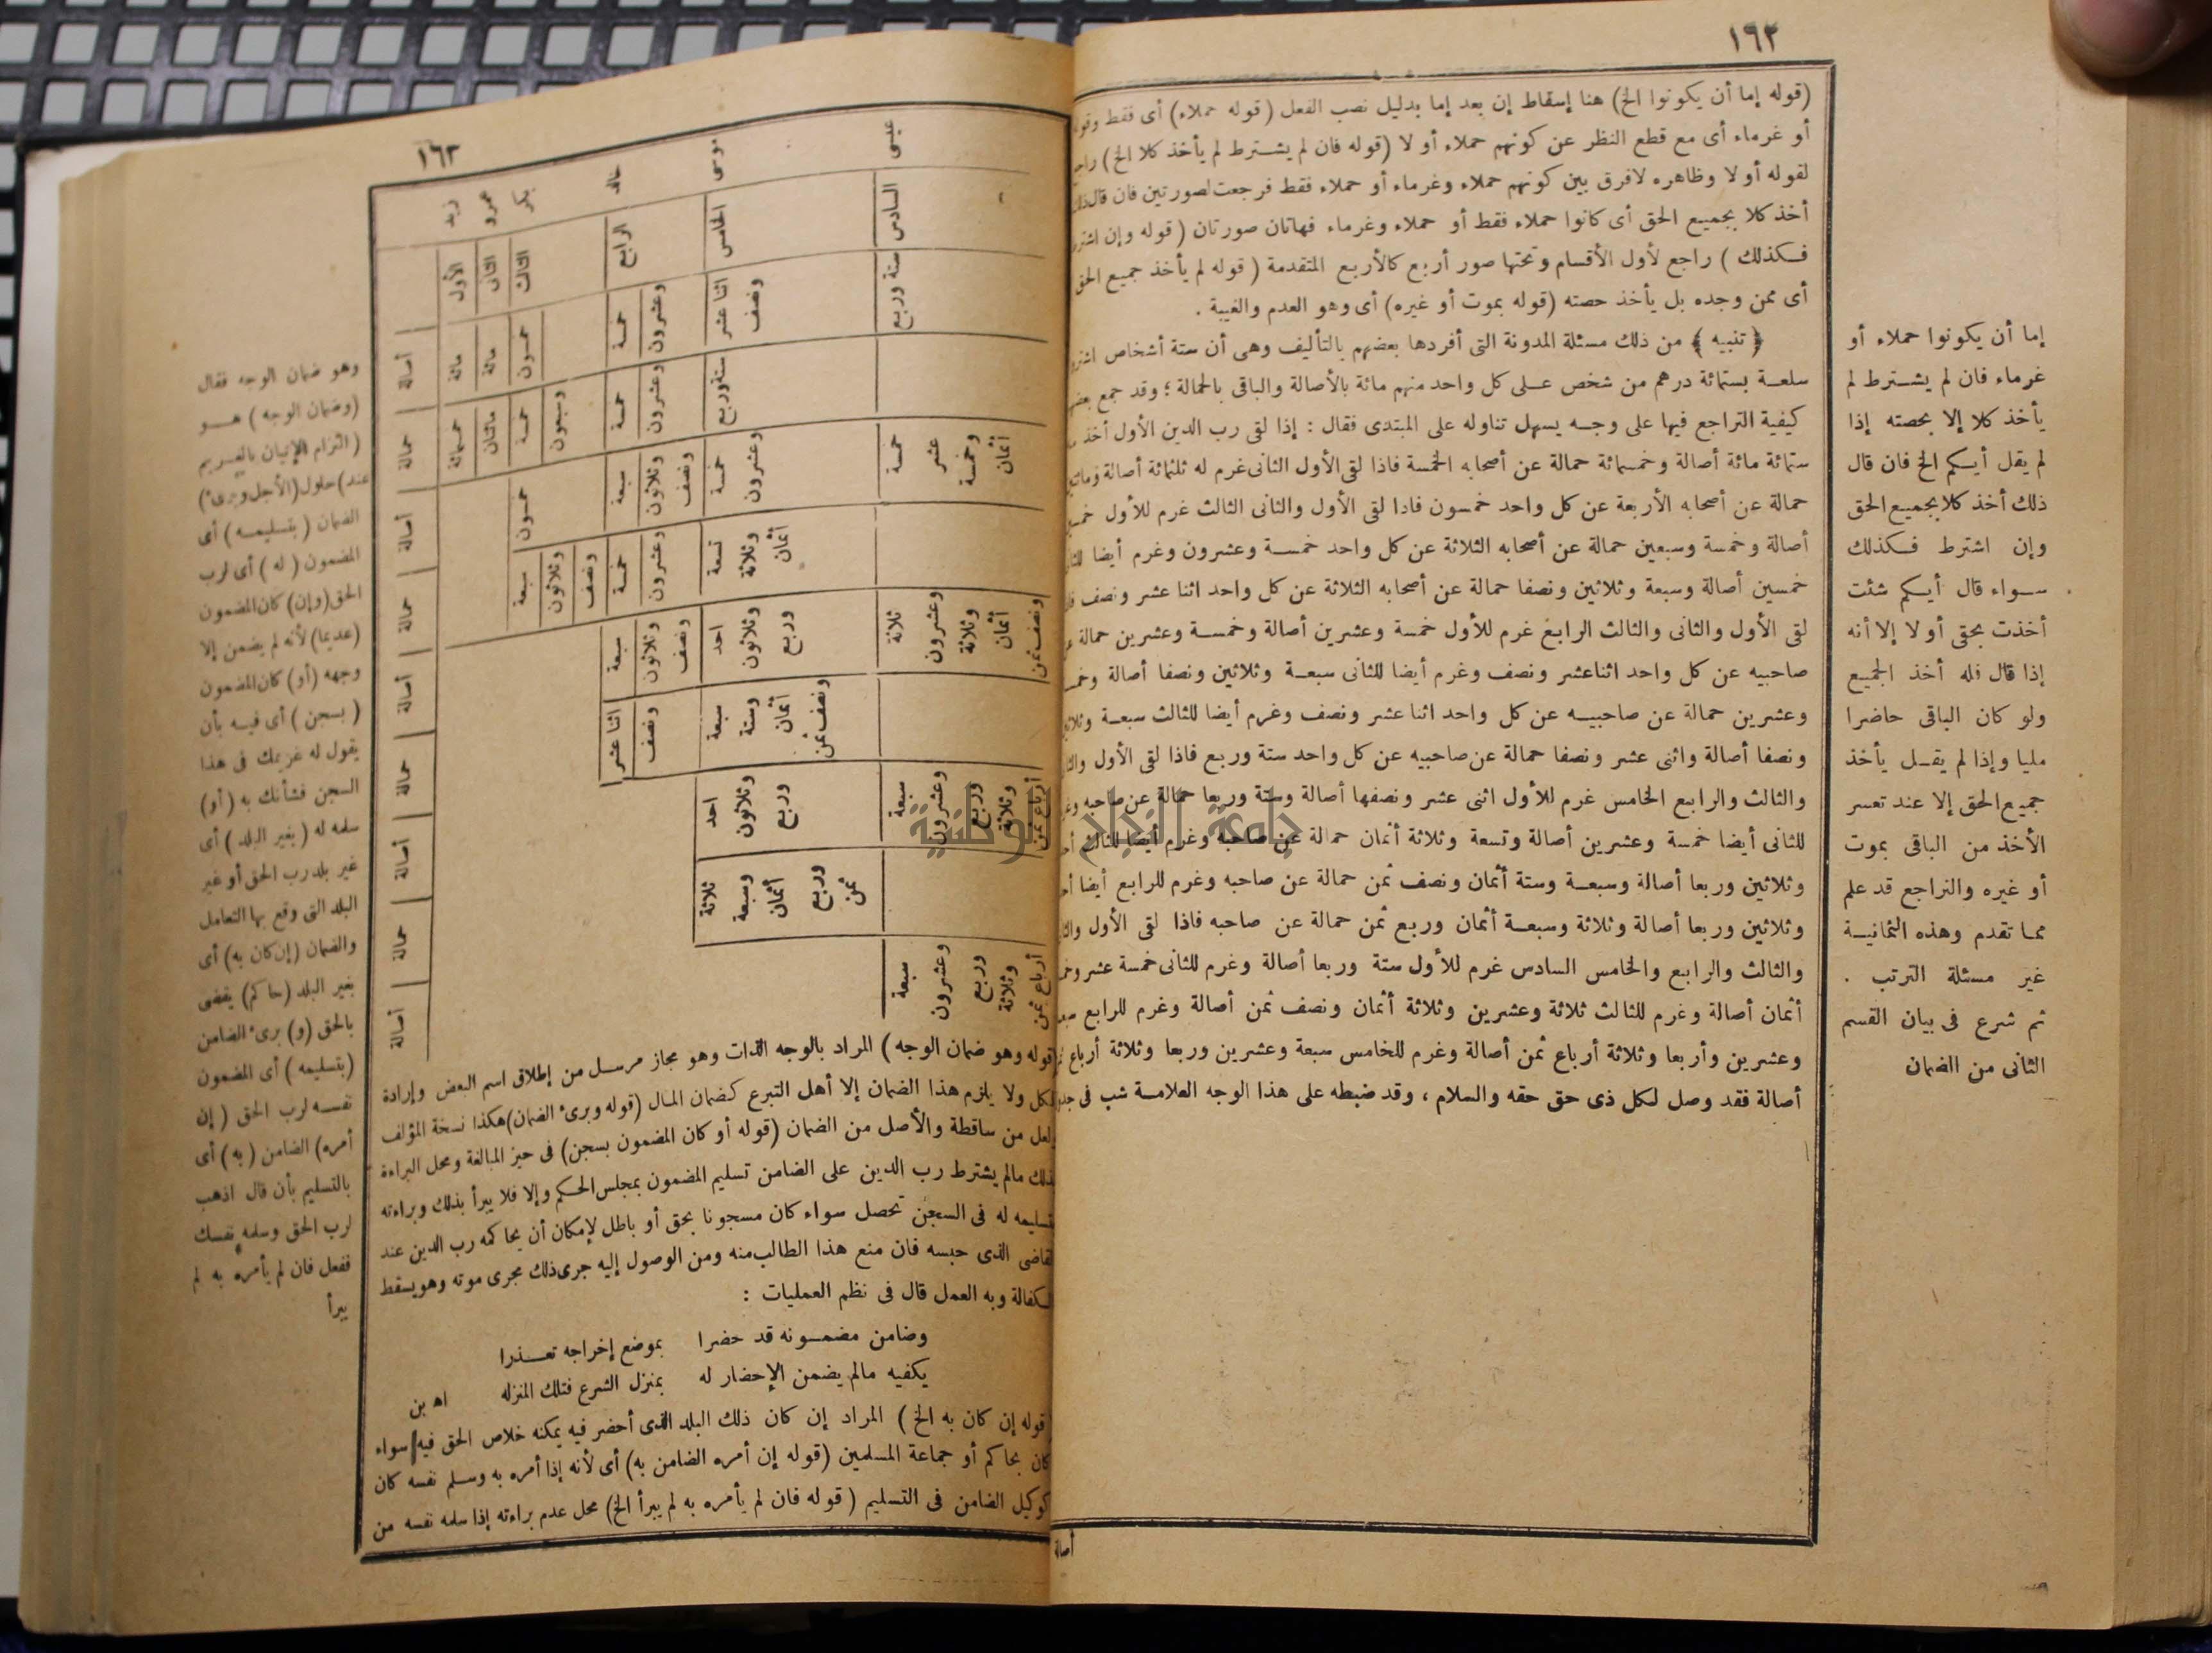 ١٦٢
(قوله إما أن يكونوا الخ) هنا إسقاط إن بعد إما بدليل نصب الفعل (قوله حملاء) أى فقط
أو غرماء أى مع قطع النظر عن كونهم حملاء أو لا (قوله فان لم يشترط لم يأخذ كلا الخ)
لقوله أولا وظاهره لافرق بين كونهم حملاء وغرماء أو حملاء فقط فرجعت لصورتين فان قال
أخذ كلا بجميع الحق أى كانوا حملاء فقط أو حملاء وغرماء فهاتان صورتان (قوله وإن
فكذلك) راجع لأول الأقسام وتحتها صور أربع كالأربع المتقدمة (قوله لم يأخذ جميع الحق
أى ممن وجده بل يأخذ حصته (قوله بموت أو غيره) أى وهو العدم والغيبة .
﴿ تنبيه ﴾ من ذلك مسئلة المدونة التى أفردها بعضهم بالتأليف وهى أن ستة أشخاص
سلعة بستمائة درهم من شخص على كل واحد منهم مائة بالأصالة والباقى بالحمالة ؛ وقد جمع
كيفية التراجع فيها على وجه يسهل تناوله على المبتدى فقال : إذا لقى رب الدين الأول أخذ
ستمائة مائة أصالة وخمسمائة حمالة عن أصحابه الخمسة فاذا لقى الأول الثانى غرم له ثلثمائة أصالة
حمالة عن أصحابه الأربعة عن كل واحد خمسون فاذا لقى الأول والثانى الثالث غرم للأول
أصالة وخمسة وسبعين حمالة عن أصحابه الثلاثة عن كل واحد خمسة وعشرون وغرم أيضا
خمسين أصالة وسبعة وثلاثين ونصفا حمالة عن أصحابه الثلاثة عن كل واحد اثنا عشر ونصف
لقى الأول والثانى والثالث الرابع غرم للأول خمسة وعشرين أصالة وخمسة وعشرين حمالة
صاحبيه عن كل واحد اثناعشر ونصف وغرم أيضا للثانى سبعة وثلاثين ونصفا أصالة
وعشرين حمالة عن صاحبيه عن كل واحد اثنا عشر ونصف وغرم أيضا للثالث سبعة
ونصفا أصالة واثنى عشر ونصفا حمالة عن صاحبيه عن كل واحد ستة وربع فاذا لقى الأول
والثالث والرابع الخامس غرم للأول اثنى عشر ونصفها أصالة وستة وربعا حمالة عن صاحبه
للثانى أيضا خمسة وعشرين أصالة وتسعة وثلاثة أثمان حمالة عن صاحبه وغرم أيضا للثالث
وثلاثين وربعا أصالة وسبعة وستة أثمان ونصف ثمن حمالة عن صاحبه وغرم للرابع أيضا
وثلاثين وربعا أصالة وثلاثة وسبعة أثمان وربع ثمن حمالة عن صاحبه فاذا لقى الأول
والثالث والرابع والخامس السادس غرم للأول ستة وربعا أصالة وغرم للثانى خمسة عشر
أثمان أصالة وغرم للثالث ثلاثة وعشرين وثلاثة أثمان ونصف ثمن أصالة وغرم للرابع
وعشرين وأربعا وثلاثة أرباع ثمن أصالة وغرم للخامس سبعة وعشرين وربعا وثلاثة أرباع
أصالة فقد وصل لكل ذى حق حقه والسلام ، وقد ضبطه على هذا الوجه العلامة شب فى
أصالة
إما أن يكونوا حملاء أو
غرماء فان لم يشترط لم
يأخذ كلا إلا بحصته إذا
لم يقل أيكم الخ فان قال
ذلك أخذ كلا بجميع الحق
وإن اشترط فكذلك
سواء قال أيكم شئت
أخذت بحقى أو لا إلا أنه
إذا قال فله أخذ الجميع
ولو كان الباقى حاضرا
مليا وإذا لم يقل يأخذ
جميع الحق إلا عند تعسر
الأخذ من الباقى بموت
أو غيره والتراجع قد علم
مما تقدم وهذه الثمانية
غير مسئلة الترتب .
ثم شرع فى بيان القسم
الثانى من الضمان
١٦٣
زيد عمرو بكر خالد موسى عيسى
الأول الثانى الثالث الرابع الخامس السادس
أصالة مائة مائة خمسون خمسة وعشرون اثنا عشر ونصف ستة وربع
حمالة خمسمائة مائتان خمسة وسبعون خمسة وعشرون ستة وربع
أصالة خمسون سبعة وثلاثون ونصف خمسة وعشرون خمسة عشر وخمسة أثمان
حمالة سبعة وثلاثون ونصف خمسة وعشرون تسعة وثلاثة أثمان
أصالة سبعة وثلاثون ونصف احد وثلاثون وربع ثلاثة وعشرون وثلاثة أثمان ونصف ثمن
حمالة اثنا عشر ونصف سبعة وستة أثمان ونصف ثمن
أصالة احد وثلاثون وربع سبعة وعشرون وربع وثلاثة أرباع ثمن
حمالة ثلاثة وسبعة أثمان وربع ثمن
أصالة سبعة وعشرون وربع وثلاثة أرباع ثمن
قوله وهو ضمان الوجه) المراد بالوجه الذات وهو مجاز مرسل من إطلاق اسم البعض وإرادة
الكل ولا يلزم هذا الضمان إلا أهل التبرع كضمان المال (قوله وبرئ الضمان) هكذا نسخة المؤلف
ولعل من ساقطة والأصل من الضمان (قوله أو كان المضمون بسجن) فى حيز المبالغة ومحل البراءة
ذلك مالم يشترط رب الدين على الضامن تسليم المضمون بمجلس الحكم وإلا فلا يبرأ بذلك وبراءته
تسليمه له فى السجن تحصل سواء كان مسجونا بحق أو باطل لإمكان أن يحاكمه رب الدين عند
القاضى الذى حبسه فان منع هذا الطالب منه ومن الوصول إليه جرى ذلك مجرى موته وهو يسقط
الكفالة وبه العمل قال فى نظم العمليات :
وضامن مضمونه قد حضرا بموضع إخراجه تعذرا
يكفيه مالم يضمن الإحضار له بمنزل الشرع فتلك المنزله اه بن
(قوله إن كان به الخ) المراد إن كان ذلك البلد الذى أحضر فيه يمكنه خلاص الحق فيه سواء
كان بحاكم أو جماعة المسلمين (قوله إن أمره الضامن به) أى لأنه إذا أمره به وسلم نفسه كان
كوكيل الضامن فى التسليم (قوله فان لم يأمره به لم يبرأ الخ) محل عدم براءته إذا سلمه نفسه من
وهو ضمان الوجه فقال
(وضمان الوجه) هو
(التزام الإتيان بالغريم
عند) حلول (الأجل وبرئ)
الضمان (بتسليمه) أى
المضمون (له) أى لرب
الحق (وإن) كان المضمون
(عديما) لأنه لم يضمن إلا
وجهه (أو) كان المضمون
(بسجن) أى فيه بأن
يقول له غريمك فى هذا
السجن فشأنك به (أو)
سلمه له (بغير البلد) أى
غير بلد رب الحق أو غير
البلد التى وقع بها التعامل
والضمان (إن كان به) أى
بغير البلد (حاكم) يقضى
بالحق (و) برئ الضامن
(بتسليمه) أى المضمون
نفسه لرب الحق (إن
أمره) الضامن (به) أى
بالتسليم بأن قال اذهب
لرب الحق وسلمه نفسك
ففعل فان لم يأمره به لم
يبرأ
جامعة النجاح الوطنية